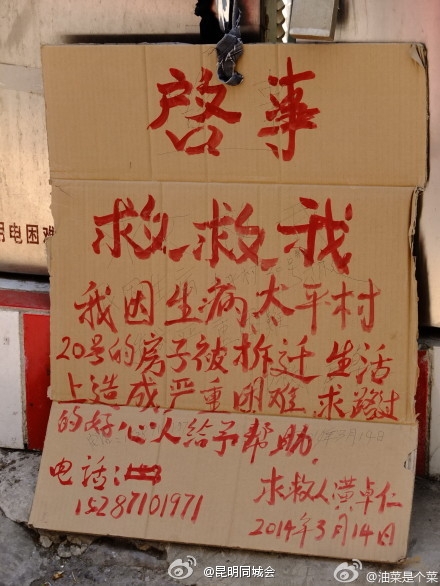 启事
用电困难
救救我
我因生病太平村
20号的房子被拆迁生活
上造成严重困难.求路过
的好心人给予帮助.
3月14日
电话:
15287101971
求救人黄卓仁
2014年3月14日
@昆明同城会
@油菜是个菜